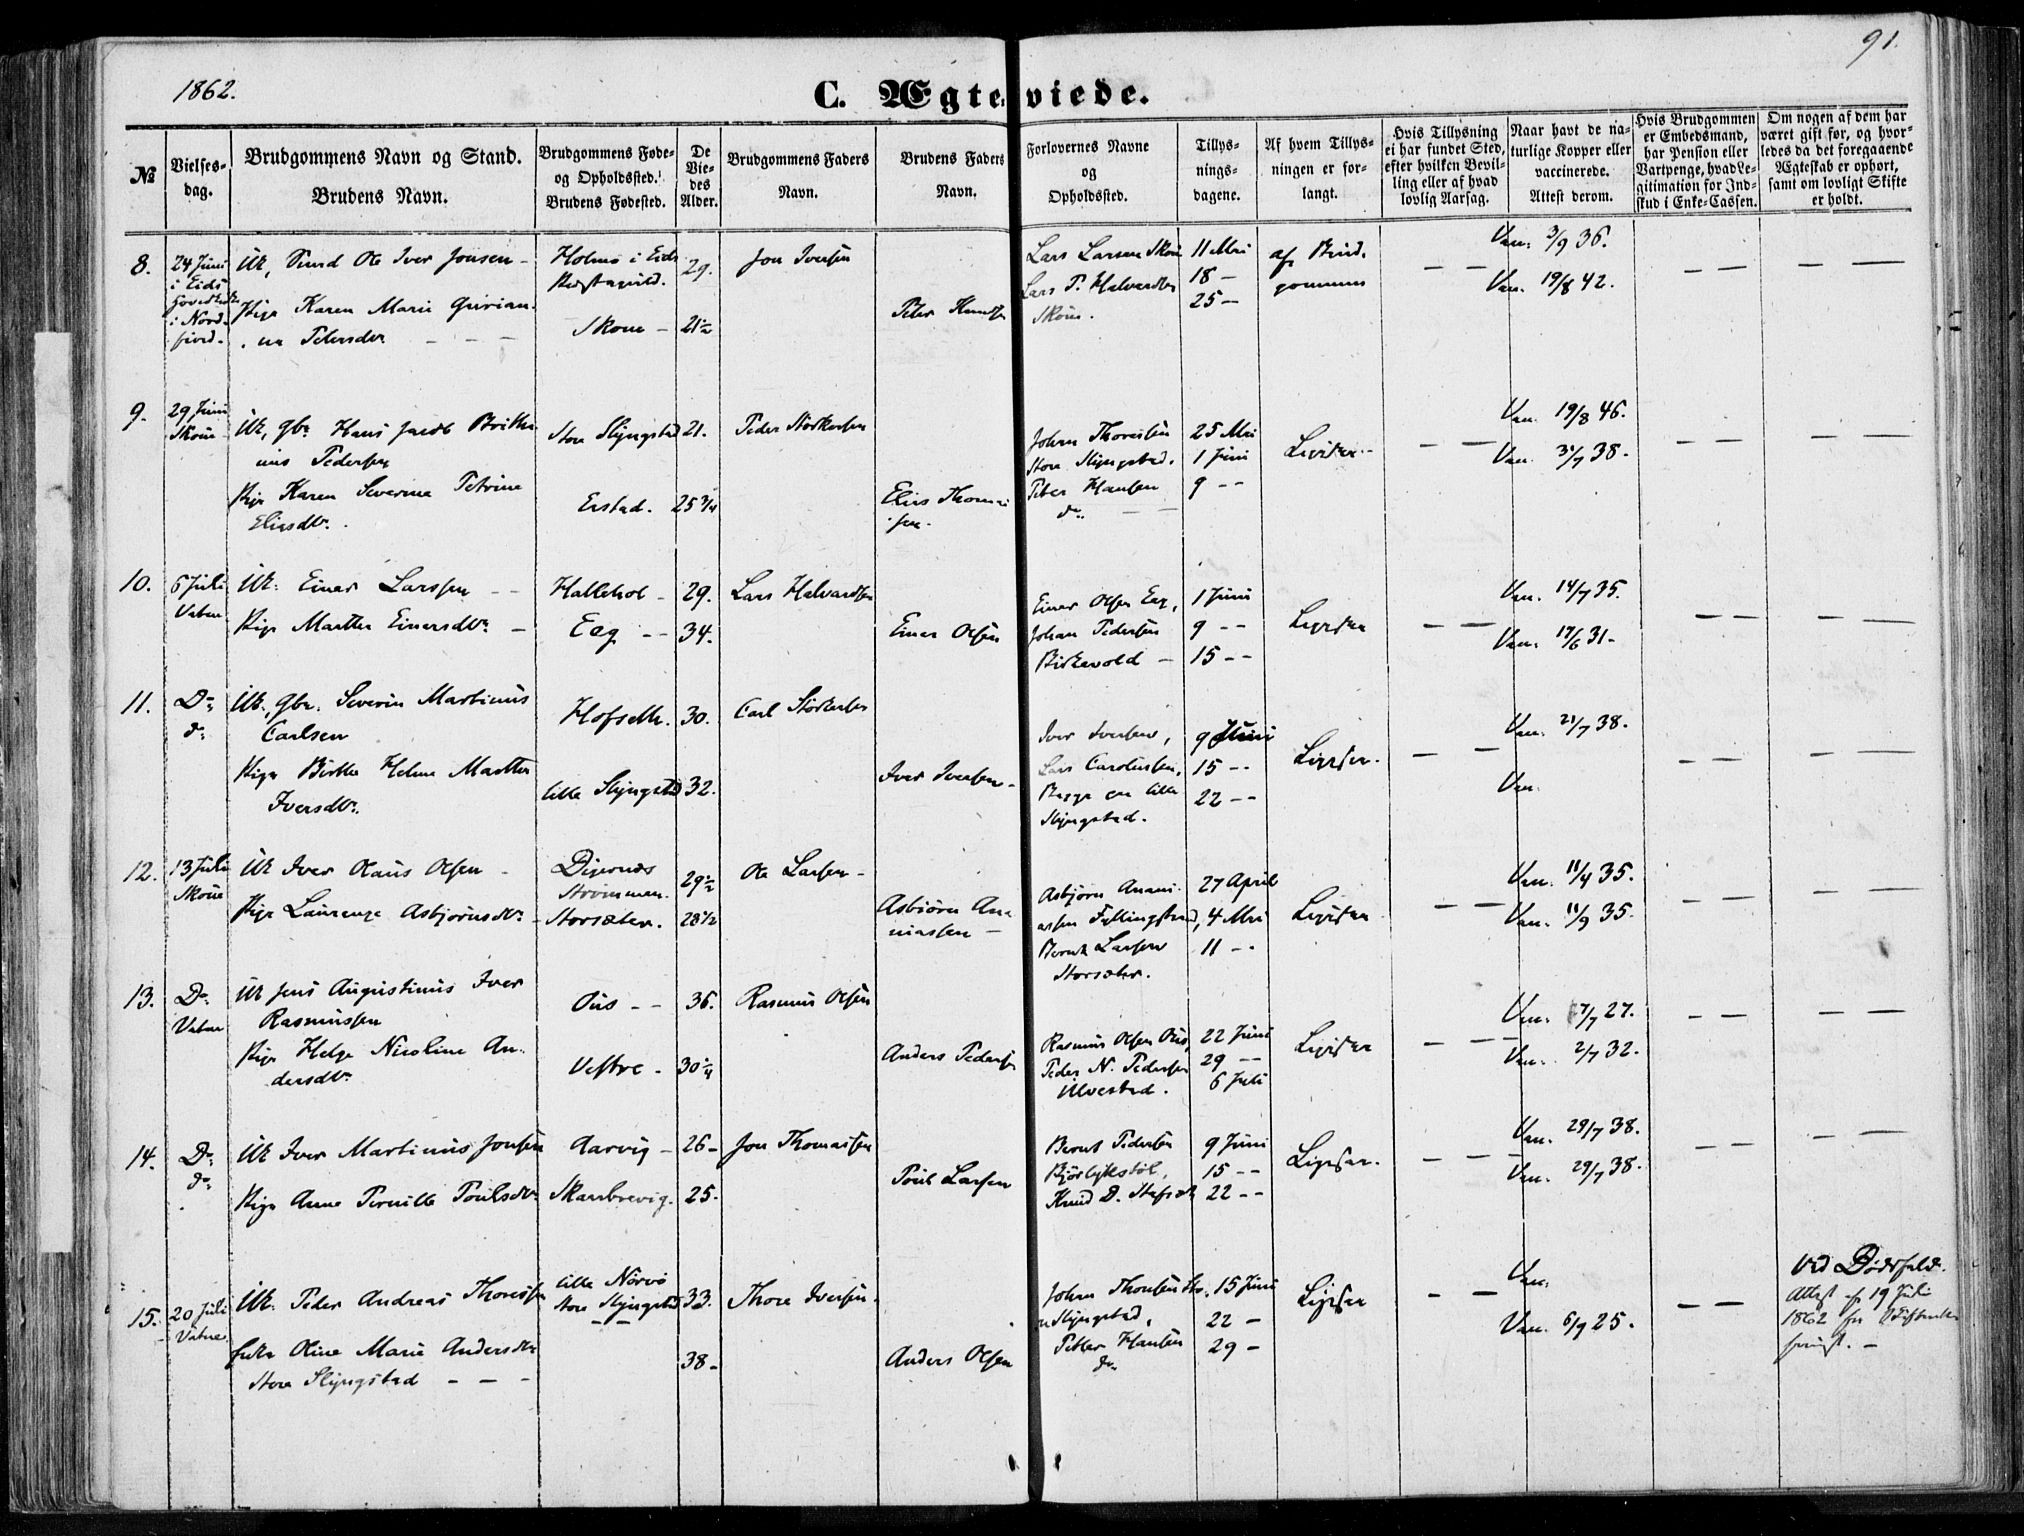 1862.
91.
C. Ægteviede.
№
Vielses-
dag.
Brudgommens Navn og Stand.
Brudens Navn.
Brudgommens Føde-
og Opholdssted.
Brudens Fødested.
De
Vie-
des
Alder.
Brudgommens Faders
Navn.
Brudens Faders
Navn.
Forlovernes Navne
og
Opholdssted.
Tillys-
nings-
dagene.
Af hvem Tillys-
ningen er for-
langt.
Hvis Tillysning
ei har fundet Sted,
efter hvilken Bevil-
ling eller af hvad
lovlig Aarsag.
Naar havt de na-
turlige Kopper eller
vaccinerede.
Attest derom.
Hvis Brudgommen
er Embedsmand,
har Pension eller
Vartpenge, hvad Le-
gitimation for Ind-
skud i Enke-Cassen.
Om nogen af dem har
været gift før, og hvor-
ledes da det foregaaende
Ægteskab er ophørt,
samt om lovligt Skifte
er holdt.
8.
24 Juni
i Eids
i Nord-
fjord.
Ole Iver Jonsen
Pige Karen Marie
Petersdtr
Holmø i Eids
Skoue
29.
21½
Jon Iversen
Lars Larsen Skoue
Skoue.
11 Mai
18 —
25 —
af Brud-
gommen
Vac. 3/9 36.
Vac. 19/8 42.
9.
29 Juni
Skoue
Uk, Gbr. Hans Jacob
Pedersen
Pige Karen Severine Petrine
Eliasdtr.
Store Slyngstad
Erstad.
21.
25 3/4
Peder Størkersen
Elias Thomas-
sen.
Johan Thoresen
Store Slyngstad.
Peter Hansen
do
25 Mai
1 Juni
9 --
Ligesaa.
Vac. 19/8 46.
Vac. 38.
10.
6 Juli
Vatne
Uk. Einar Larssen
Pige Marthe Einarsdtr.
Hallehol
Eeg --
29.
34.
Lars Halvardsen
Einar Olsen
Einar Olsen Eeg,
Johan Pedersen
Birkevold
1 Juni
9 --
15 --
Ligesaa
Vac. 14/7 35.
Vac. 17/6 31.
11.
Do
do
Uk, Gbr. Severin Martinus
Carlsen
Pige Birthe Helene Marthe
Iversdtr.
Hofseth.
Lille Slyngstad
30.
32.
Carl Størkersen
Iver Iversen.
Iver Iversen,
Lars Carolussen,
Begge paa Lille
Slyngstad.
9 Juni
15 --
22 --
Ligesaa.
Vac. 21/7 38.
Vac.
12.
13 Juli
Skoue
Uk Iver Olaus Olsen
Pige Laurenze Asbjørnsdtr.
Digernes
Strømmen.
Storsæter.
29½
28½
Ole Larsen
Asbjørn An-
niassen
Asbjørn Anani-
assen Fyllingstrand,
Bernt Larsen
Storsæter.
27 April
4 Mai
11 --
Ligesaa
Vac. 11/4 35.
Vac. 11/9 35.
13.
Do
Vatne
Uk Jens Augustinus Iver
Rasmussen
Pige Helge Nicoline An-
dersdtr.
Ous --
Vestre
36.
30¼
Rasmus Olsen
Anders Pedersen
Rasmus Olsen Ous,
Peder N. Pedersen
Ulvestad.
22 Juni
29 --
6 Juli
Ligesaa
Vac. 7/7 27.
Vac. 2/7 32.
14.
Do
do
Uk Iver Martinus Jonsen
Pige Anne Pernille Poulsdtr
Aarvig
Skarbrevig.
26
25.
Jon Thomassen
Poul Larsen
Bernt Pedersen
Bjørlykstøl,
Knud D. Stafset
9 Juni
15 --
22 --
Ligesaa.
Vac. 29/7 38.
Vac. 29/7 38.
15.
20 Juli
Vatne
Uk. Peder Andreas Thoressen
Enke Oline Marie Andersdtr
Store Slyngstad
Lille Nørvø
Store Slyngstad
33.
38
Thore Iversen
Anders Olsen
Johan Thoresen Sto-
re Slyngstad,
Petter Hansen
do
15 Juni
22 —
29 —
Ligesaa
Vac.
Vac. 6/9 25.
Ved Dødsfald.
Attest af 19 Juli
1862 fra Skifteretten